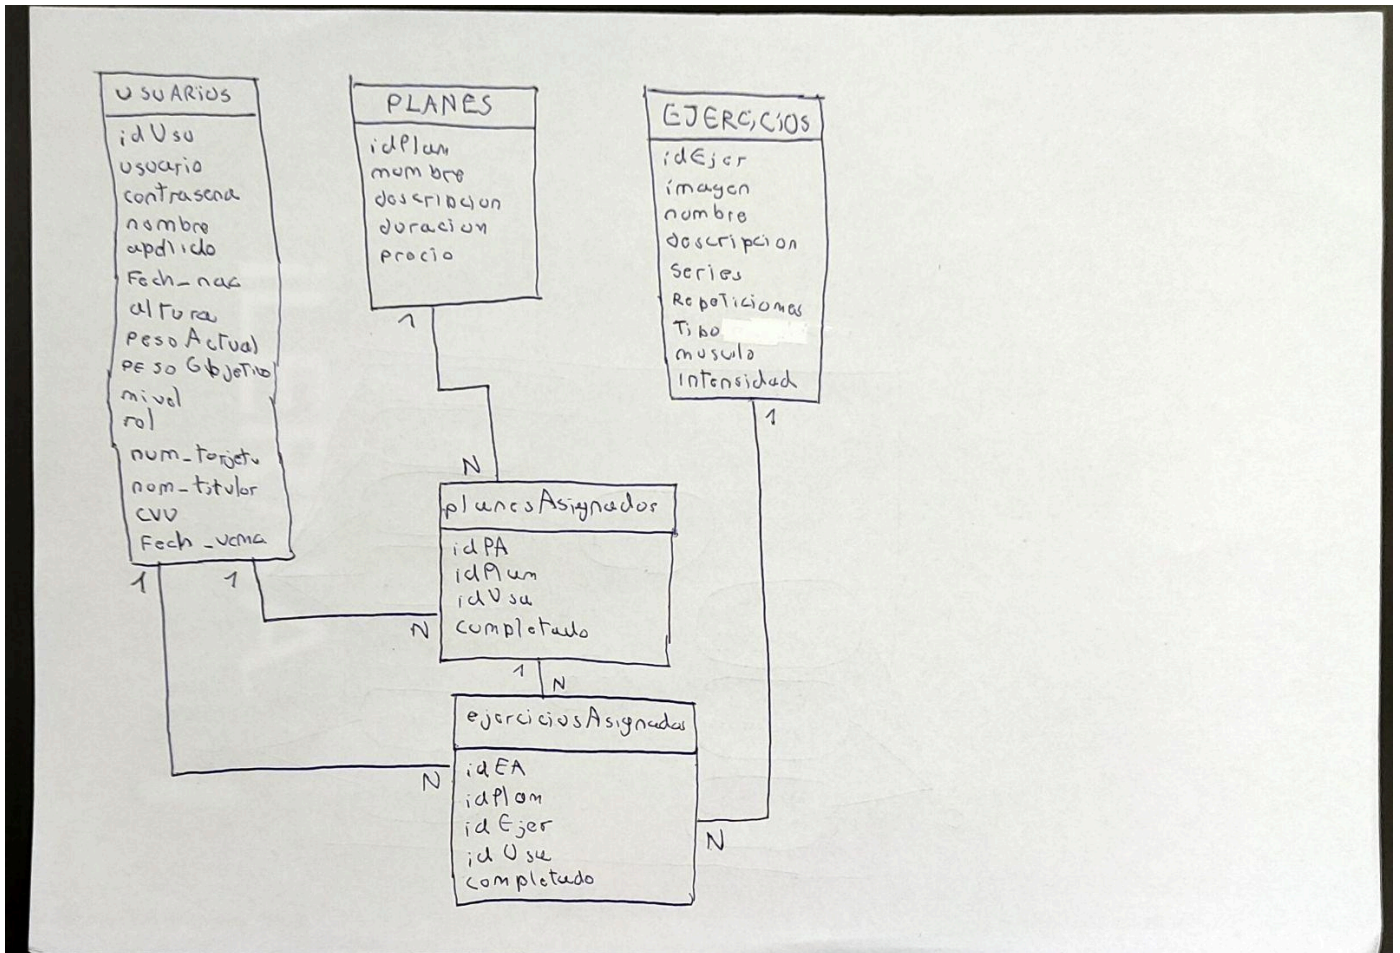 USUARIOS
idUsu
usuario
contrasena
nombre
apellido
Fech_nac
altura
pesoActual
PESO Objetivo
nivel
rol
num_tarjeta
nom_titular
CVV
Fech_venc
1
1
PLANES
idPlan
nombre
descripcion
duracion
precio
1
N
EJERCICIOS
idEjer
imagen
nombre
descripcion
Series
Repeticiones
Tipo
musculo
Intensidad
1
planesAsignados
idPA
idPlan
idUsu
completado
N
1
N
ejerciciosAsignados
idEA
idPlan
idEjer
idUsu
completado
N
N